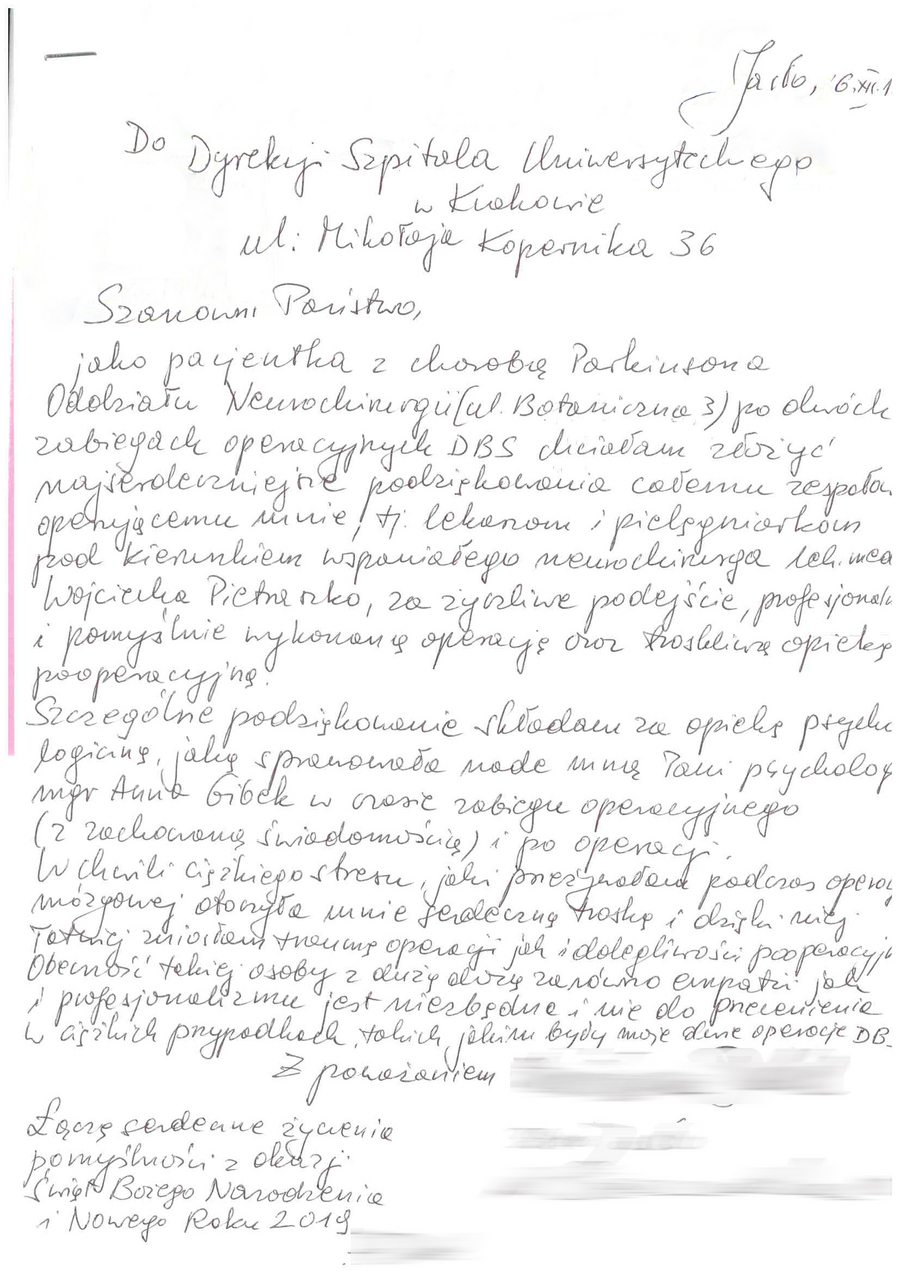 Jasło, 6.XII.1
Do Dyrekcji Szpitala Uniwersyteckiego
w Krakowie
ul: Mikołaja Kopernika 36
Szanowni Państwo,
jako pacjentka z chorobą Parkinsona
Oddziału Neurochirurgii (ul. Botaniczna 3) po dwóch
zabiegach operacyjnych DBS chciałam złożyć
najserdeczniejsze podziękowania całemu zespoło
operującemu mnie, tj. lekarzom i pielęgniarkom
pod kierunkiem wspaniałego neurochirurga lek. med
Wojciecha Pietraszko, za życzliwe podejście, profesjonaln
i pomyślnie wykonaną operację oraz troskliwą opiekę
pooperacyjną.
Szczególne podziękowanie składam za opiekę psycho
logiczną, jaką sprawowała nade mną Pani psycholog
mgr Anna Gibek w czasie zabiegu operacyjnego
(z zachowaną świadomością) i po operacji.
W chwili ciężkiego stresu, jaki przeżywałam podczas operac
mózgowej otoczyła mnie serdeczną troską i dzięki niej
łatwiej zniosłam traumę operacji jak i dolegliwości pooperacyjn
Obecność takiej osoby z dużą dozą zarówno empatii jak
i profesjonalizmu jest niezbędna i nie do przecenienia
w ciężkich przypadkach, takich, jakimi były moje dwie operacje DB
Z poważaniem
Łączę serdeczne życzenia
pomyślności z okazji
Świąt Bożego Narodzenia
i Nowego Roku 2019